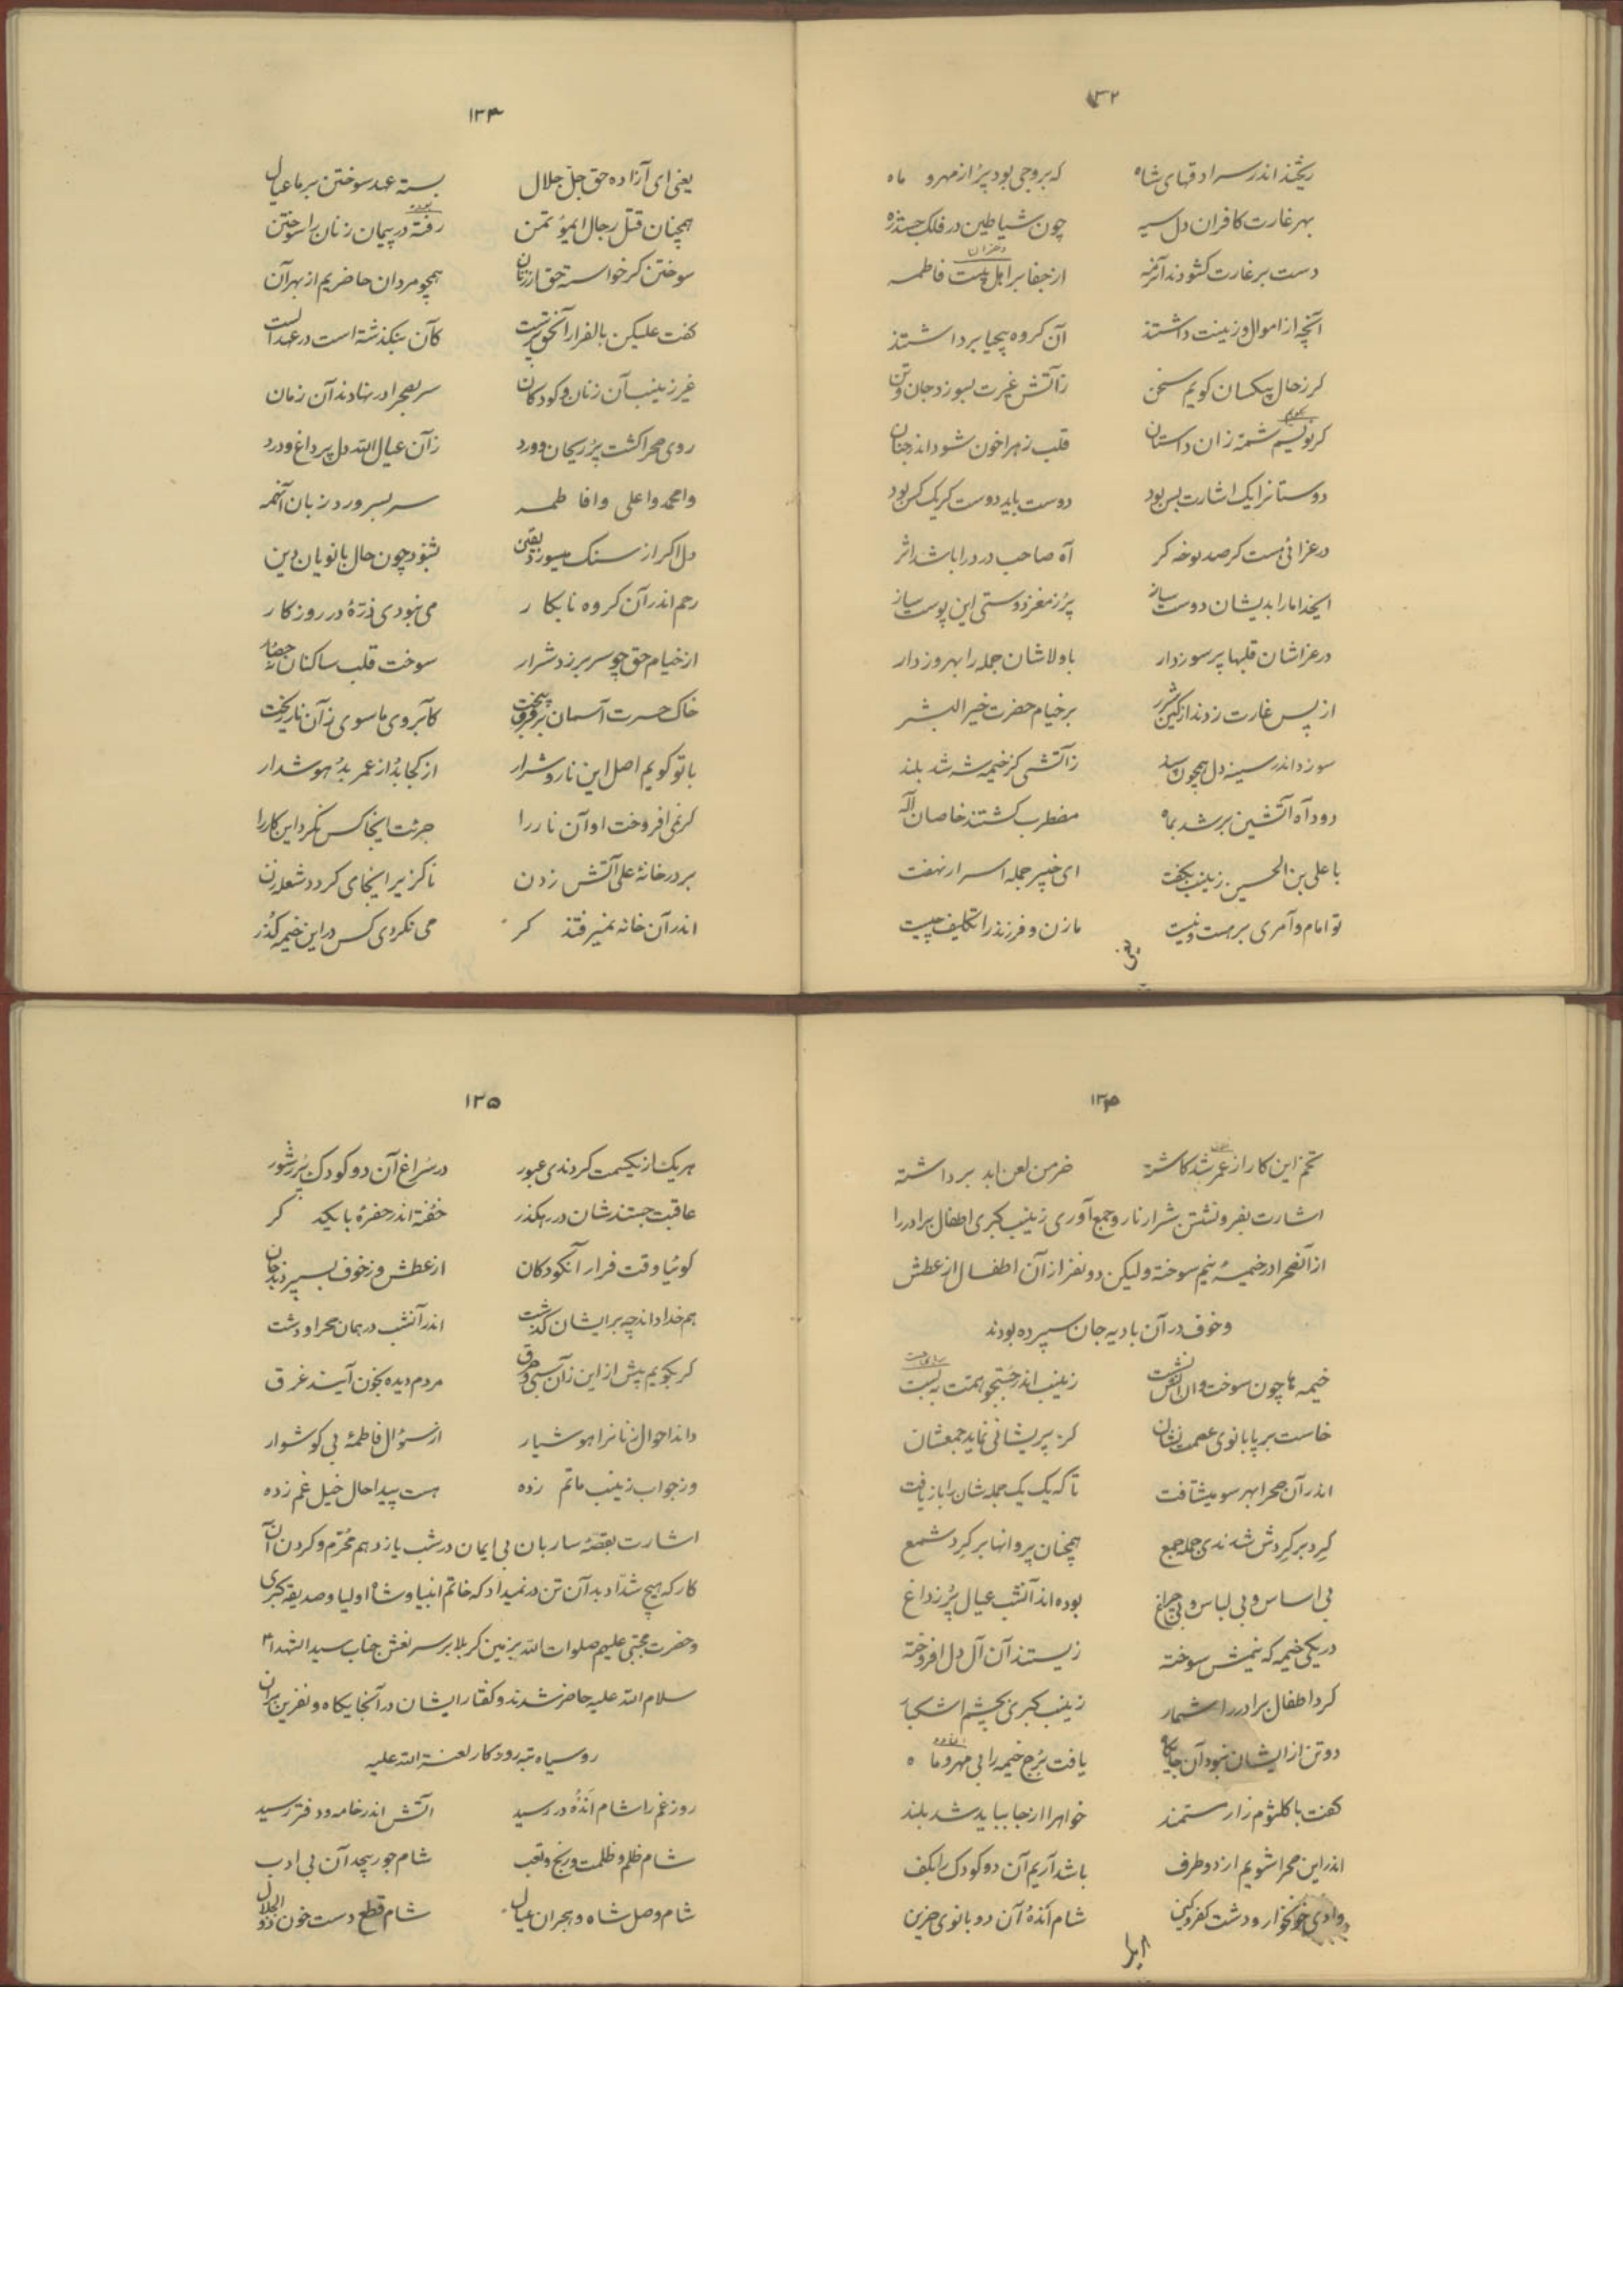 ۱۳۲
ریختند اندر سرادقهای شاه که بروجی بود پر از مهر و ماه
بهر غارت کافران دل سیه چون شیاطین در فلک جستند ره
دست بر غارت گشودند آن همه از جفا بر اهل بیت فاطمه
آنچه از اموال و زینت داشتند آن گروه بیحیا برداشتند
گر ز حال بیکسان گویم سخن ز آتش غیرت بسوزد جان و تن
گر نویسم شمهٔ زان داستان قلب زهرا خون شود اندر جنان
دوستانرا یک اشارت بس بود دوست باید دوست گر یک کس بود
در عزائی هست گر صد نوحه گر آه صاحب درد را باشد اثر
ایخدا ما را بدیشان دوست ساز پر ز مغز دوستی این پوست ساز
در عزاشان قلبها پر سوز دار با ولاشان جمله را بهروز دار
از پس غارت زدند از کین شرر بر خیام حضرت خیر البشر
سوزد اندر سینه دل همچون سپند ز آتشی کز خیمه شه شد بلند
دود آه آتشین بر شد بماه مضطرب گشتند خاصان اله
با علی بن الحسین زینب بگفت ای خبیر جمله اسرار نهفت
تو امام و آمری بر هست و نیست ما زن و فرزند را تکلیف چیست
یعنی
۱۳۳
یعنی ای آزاده حق جل جلال بسته عهد سوختن بر ما عیال
همچنان قتل رجال ای مؤتمن رفته در پیمان زنان را سوختن
سوختن گر خواسته حق از زنان همچو مردان حاضریم از بهر آن
گفت علیکن بالفرار آن حق پرست کان بنگذشته است در عهد الست
غیر زینب آن زنان و کودکان سر بصحرا در نهادند آن زمان
روی صحرا گشت پر ریحان و ورد زآن عیال الله دل پر داغ و درد
وا محمد وا علی وا فاطمه سر بسر ورد زبان آنهمه
دل اگر از سنگ میسوزد یقین بشنود چون حال بانویان دین
رحم اندر آن گروه نابکار می نبودی ذرهٔ در روزگار
از خیام حق چو سر بر زد شرار سوخت قلب ساکنان
خاک حسرت آسمان بر فرق بیخت کآبروی ما سوی زآن نار ریخت
با تو گویم اصل این نار و شرار از کجا بد از عمر بد هوشدار
گر نمی افروخت او آن نار را جرئت اینجا کس نکرد این کار را
بر در خانهٔ علی آتش زدن ناگزیر اینجای گردد شعله زن
اندر آن خانه نمیرفتند گر می نکردی کس در این خیمه گذر
۱۳۴
تخم این کار از عمر شد کاشته خرمن لعن ابد برداشته
اشارت بفرو نشستن شرار نار و جمع آوری زینب کبری اطفال برادر را
از آنصحرا در خیمهٔ نیم سوخته ولیکن دو نفر از آن اطفال از عطش
و خوف در آن بادیه جان سپرده بودند
خیمه ها چون سوخت و آن آتش نشست زینب اندر جستجو همت ببست
خاست بر پا بانوی عصمت نشان کز پریشانی نماید جمعشان
اندر آن صحرا بهر سو میشتافت تا که یک یک جمله شان را باز یافت
گرد بر گردش شدندی جمله جمع همچنان پروانها بر گرد شمع
بی اساس و بی لباس و بی چراغ بوده اند آنشب عیال پر ز داغ
در یکی خیمه که نیمش سوخته زیستند آن آل دل افروخته
کرد اطفال برادر را شمار زینب کبری بچشم اشکبار
دو تن از ایشان نبود آن جایگاه یافت برج خیمه را بی مهر و ماه
گفت با کلثوم زار مستمند خواهرا از جا بباید شد بلند
اندر این صحرا شویم از دو طرف باشد آریم آن دو کودک را بکف
وادی خونخوار و دشت کفر و کین شام انده آن دو بانوی حزین
هریک
۱۳۵
هریک از یکسمت کردندی عبور در سراغ آن دو کودک پر ز شور
عاقبت جستندشان در رهگذر خفته اندر حفرهٔ با یکدگر
گوئیا وقت فرار آنکودکان از عطش وز خوف بسپردند جان
هم خدا داند چه بر ایشان گذشت اندر آنشب در همان صحرا و دشت
گر بگویم بیش از این زآن سبی و حرق مردم دیده بخون آیند غرق
داند احوال زنانرا هوشیار از سؤال فاطمهٔ بی گوشوار
وز جواب زینب ماتم زده هست پیدا حال خیل غم زده
اشارت بقصهٔ ساربان بی ایمان در شب یازدهم محرم و کردن آن
کار که هیچ شداد بد آن تن در نمیداد که خاتم انبیا و شاه اولیا و صدیقه کبری
و حضرت مجتبی علیهم صلوات الله بزمین کربلا بر سر نعش جناب سید الشهدا
سلام الله علیه حاضر شدند و گفتار ایشان در آنجایگاه و نفرین بر آن
روسیاه تبه روزگار لعنة الله علیه
روز غم را شام انده در رسید آتش اندر خامه و دفتر رسید
شام ظلم و ظلمت و رنج و تعب شام جور بیحد آن بی ادب
شام وصل شاه و هجران عیال شام قطع دست خون ذو الجلال